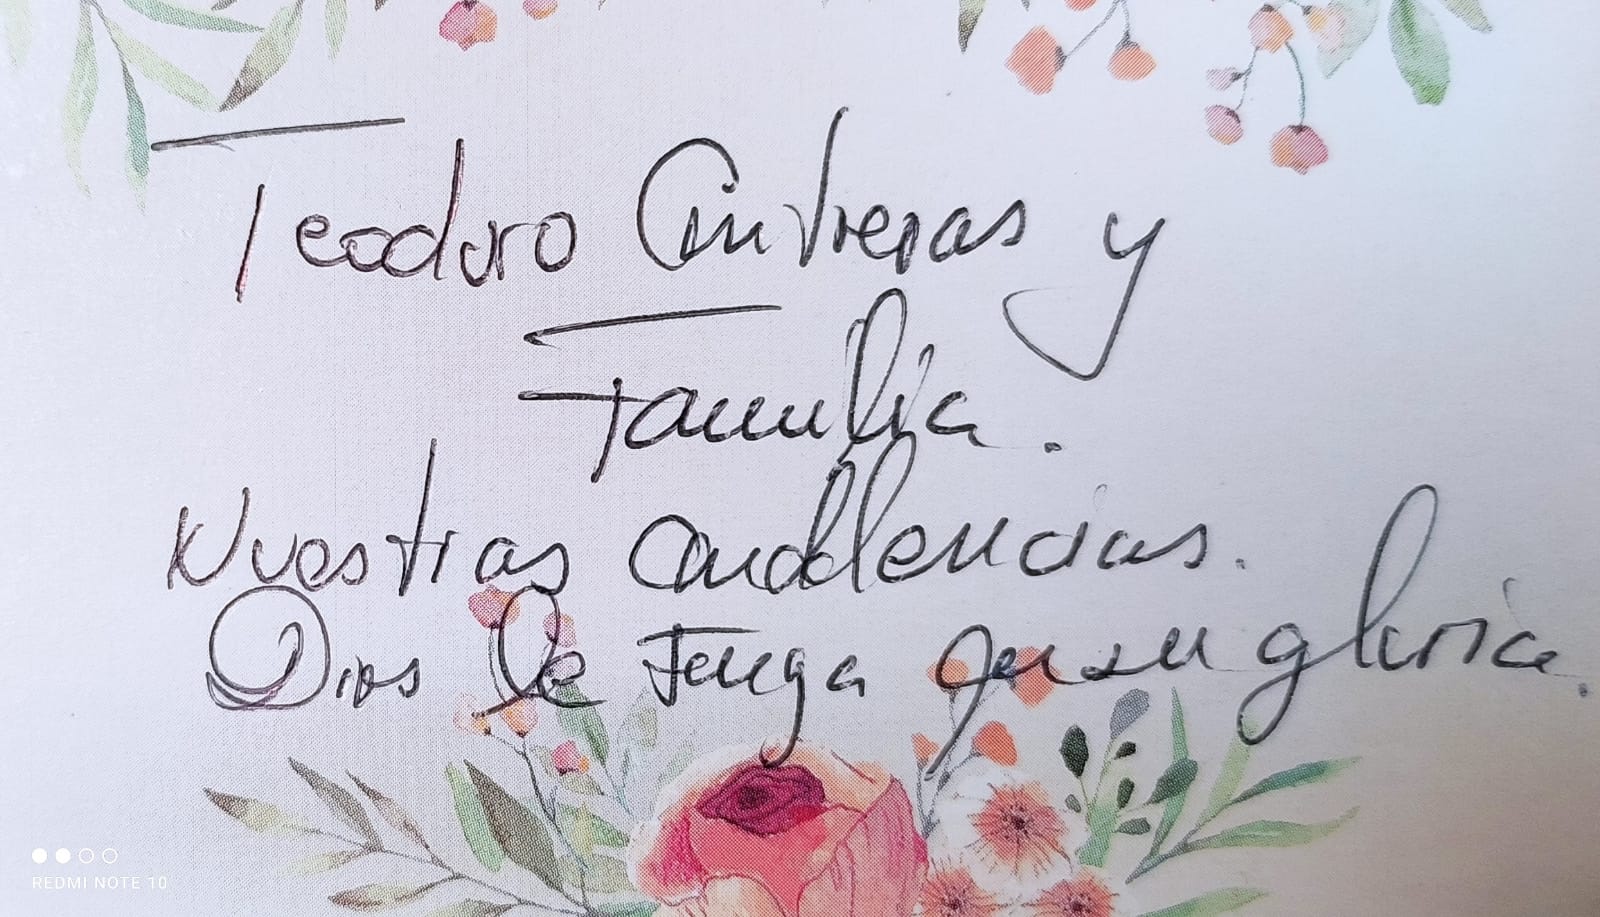 Teodoro Contreras y
Familia.
Nuestras condolencias.
Dios le tenga en su gloria.
REDMI NOTE 10